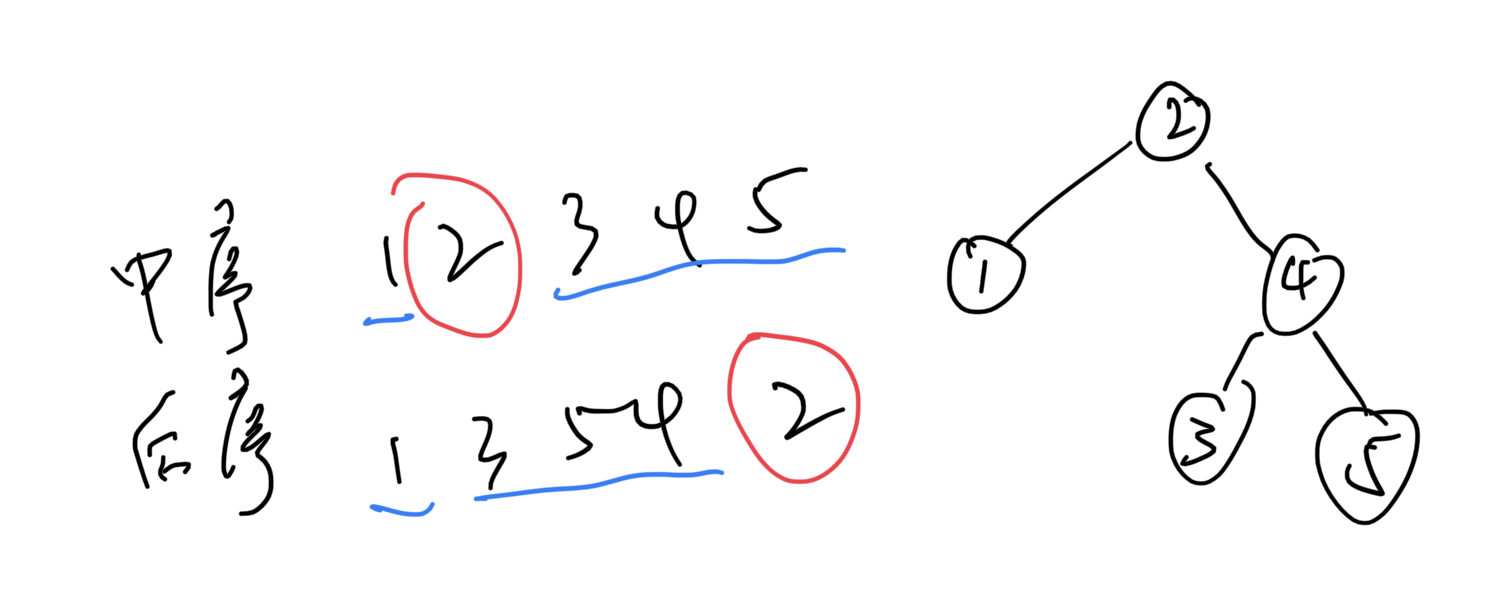 中序 1 2 3 4 5
后序 1 3 5 4 2
2
1 4
3 5